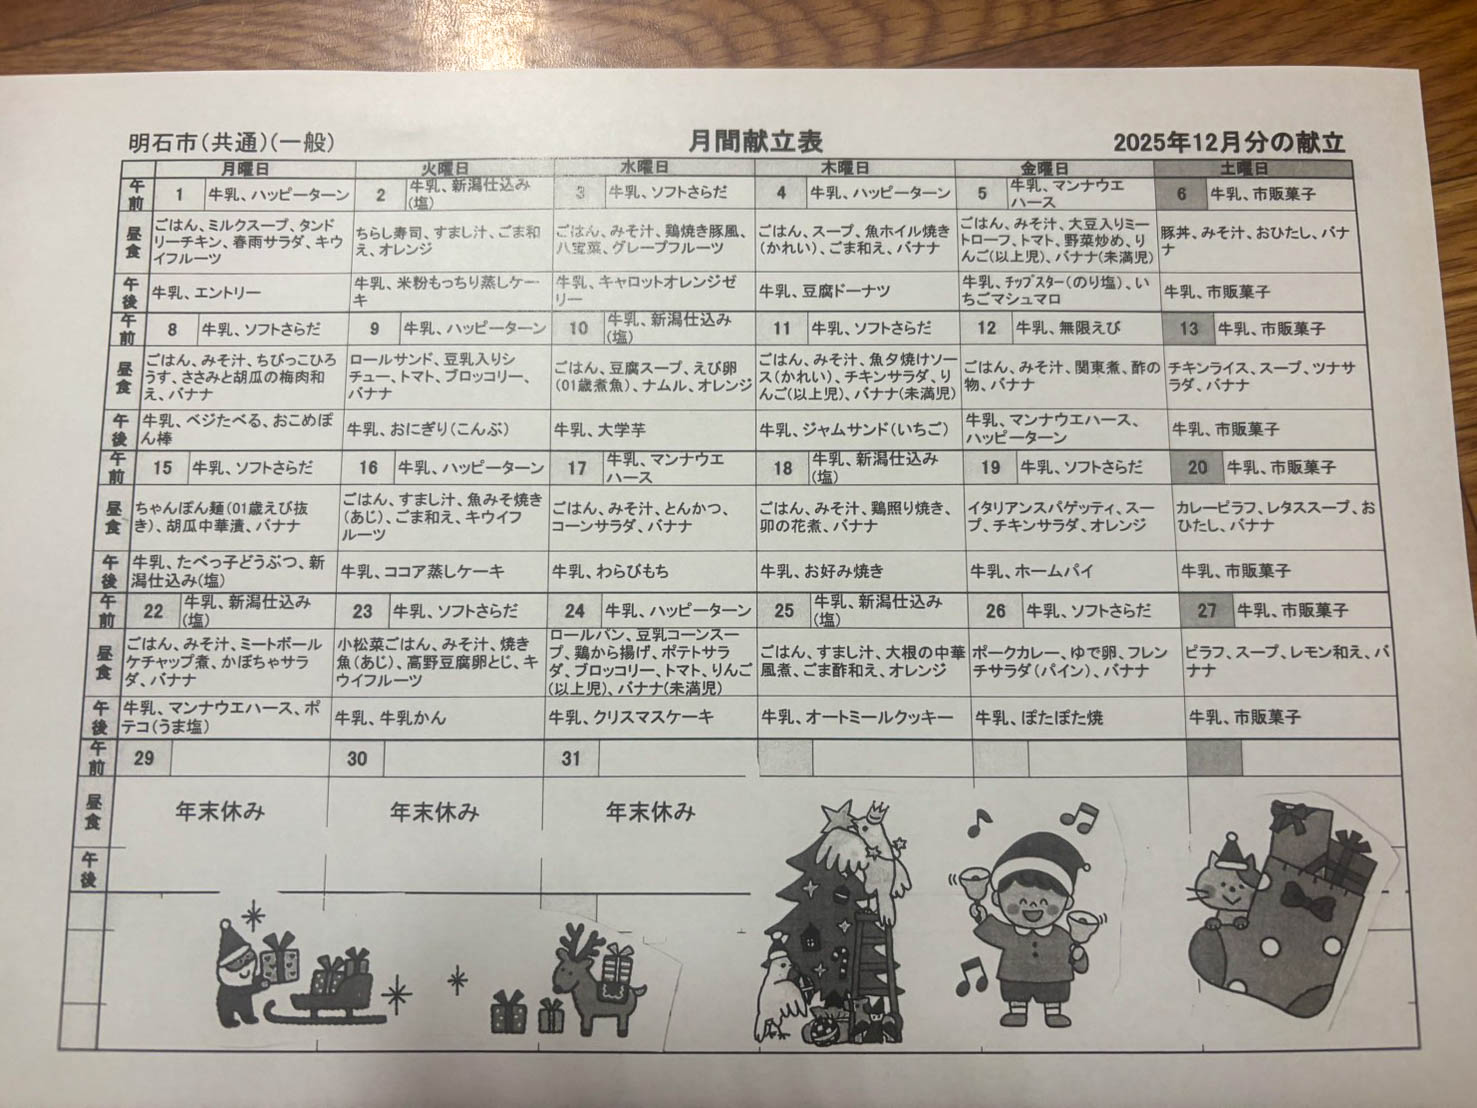 明石市(共通)(一般)
月間献立表
2025年12月分の献立
月曜日 火曜日 水曜日 木曜日 金曜日 土曜日
午前
1 牛乳、ハッピーターン
2 牛乳、新潟仕込み
(塩)
3 牛乳、ソフトさらだ
4 牛乳、ハッピーターン
5 牛乳、マンナウエ
ハース
6 牛乳、市販菓子
昼食
ごはん、ミルクスープ、タンド
リーチキン、春雨サラダ、キウ
イフルーツ
ちらし寿司、すまし汁、ごま和
え、オレンジ
ごはん、みそ汁、鶏焼き豚風、
八宝菜、グレープフルーツ
ごはん、スープ、魚ホイル焼き
(かれい)、ごま和え、バナナ
ごはん、みそ汁、大豆入りミー
トローフ、トマト、野菜炒め、り
んご(以上児)、バナナ(未満児)
豚丼、みそ汁、おひたし、バナ
ナ
午後
牛乳、エントリー
牛乳、米粉もっちり蒸しケー
キ
牛乳、キャロットオレンジゼ
リー
牛乳、豆腐ドーナツ
牛乳、チップスター(のり塩)、い
ちごマシュマロ
牛乳、市販菓子
午前
8 牛乳、ソフトさらだ
9 牛乳、ハッピーターン
10 牛乳、新潟仕込み
(塩)
11 牛乳、ソフトさらだ
12 牛乳、無限えび
13 牛乳、市販菓子
昼食
ごはん、みそ汁、ちびっこひろ
うす、ささみと胡瓜の梅肉和
え、バナナ
ロールサンド、豆乳入りシ
チュー、トマト、ブロッコリー、
バナナ
ごはん、豆腐スープ、えび卵
(01歳煮魚)、ナムル、オレンジ
ごはん、みそ汁、魚夕焼けソー
ス(かれい)、チキンサラダ、り
んご(以上児)、バナナ(未満児)
ごはん、みそ汁、関東煮、酢の
物、バナナ
チキンライス、スープ、ツナサ
ラダ、バナナ
午後
牛乳、ベジたべる、おこめぽ
ん棒
牛乳、おにぎり(こんぶ)
牛乳、大学芋
牛乳、ジャムサンド(いちご)
牛乳、マンナウエハース、
ハッピーターン
牛乳、市販菓子
午前
15 牛乳、ソフトさらだ
16 牛乳、ハッピーターン
17 牛乳、マンナウエ
ハース
18 牛乳、新潟仕込み
(塩)
19 牛乳、ソフトさらだ
20 牛乳、市販菓子
昼食
ちゃんぽん麺(01歳えび抜
き)、胡瓜中華漬、バナナ
ごはん、すまし汁、魚みそ焼き
(あじ)、ごま和え、キウイフ
ルーツ
ごはん、みそ汁、とんかつ、
コーンサラダ、バナナ
ごはん、みそ汁、鶏照り焼き、
卯の花煮、バナナ
イタリアンスパゲッティ、スー
プ、チキンサラダ、オレンジ
カレーピラフ、レタススープ、お
ひたし、バナナ
午後
牛乳、たべっ子どうぶつ、新
潟仕込み(塩)
牛乳、ココア蒸しケーキ
牛乳、わらびもち
牛乳、お好み焼き
牛乳、ホームパイ
牛乳、市販菓子
午前
22 牛乳、新潟仕込み
(塩)
23 牛乳、ソフトさらだ
24 牛乳、ハッピーターン
25 牛乳、新潟仕込み
(塩)
26 牛乳、ソフトさらだ
27 牛乳、市販菓子
昼食
ごはん、みそ汁、ミートボール
ケチャップ煮、かぼちゃサラ
ダ、バナナ
小松菜ごはん、みそ汁、焼き
魚(あじ)、高野豆腐卵とじ、キ
ウイフルーツ
ロールパン、豆乳コーンスー
プ、鶏から揚げ、ポテトサラ
ダ、ブロッコリー、トマト、りんご
(以上児)、バナナ(未満児)
ごはん、すまし汁、大根の中華
風煮、ごま酢和え、オレンジ
ポークカレー、ゆで卵、フレン
チサラダ(パイン)、バナナ
ピラフ、スープ、レモン和え、バ
ナナ
午後
牛乳、マンナウエハース、ポ
テコ(うま塩)
牛乳、牛乳かん
牛乳、クリスマスケーキ
牛乳、オートミールクッキー
牛乳、ぽたぽた焼
牛乳、市販菓子
午前
29
30
31
昼食
年末休み
年末休み
年末休み
午後